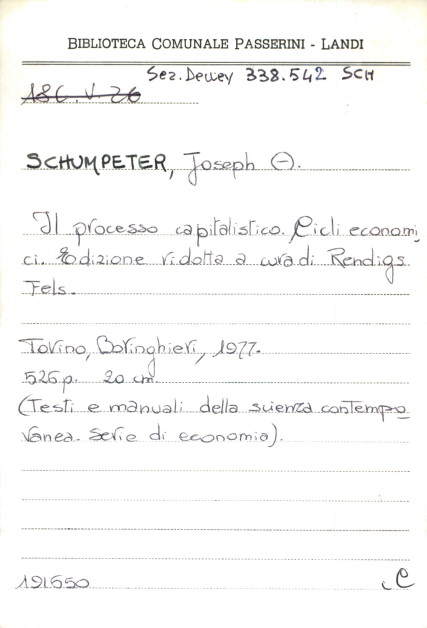 BIBLIOTECA COMUNALE PASSERINI - LANDI
Sez. Dewey 338.542 SCH
18C.V.26
SCHUMPETER, Joseph (-).
Il processo capitalistico. Cicli economi
ci. Edizione ridotta a cura di Rendigs
Fels.
Torino, Boringhieri, 1977.
526 p. 20 cm.
(Testi e manuali della scienza contempo
ranea. Serie di economia).
191550
C